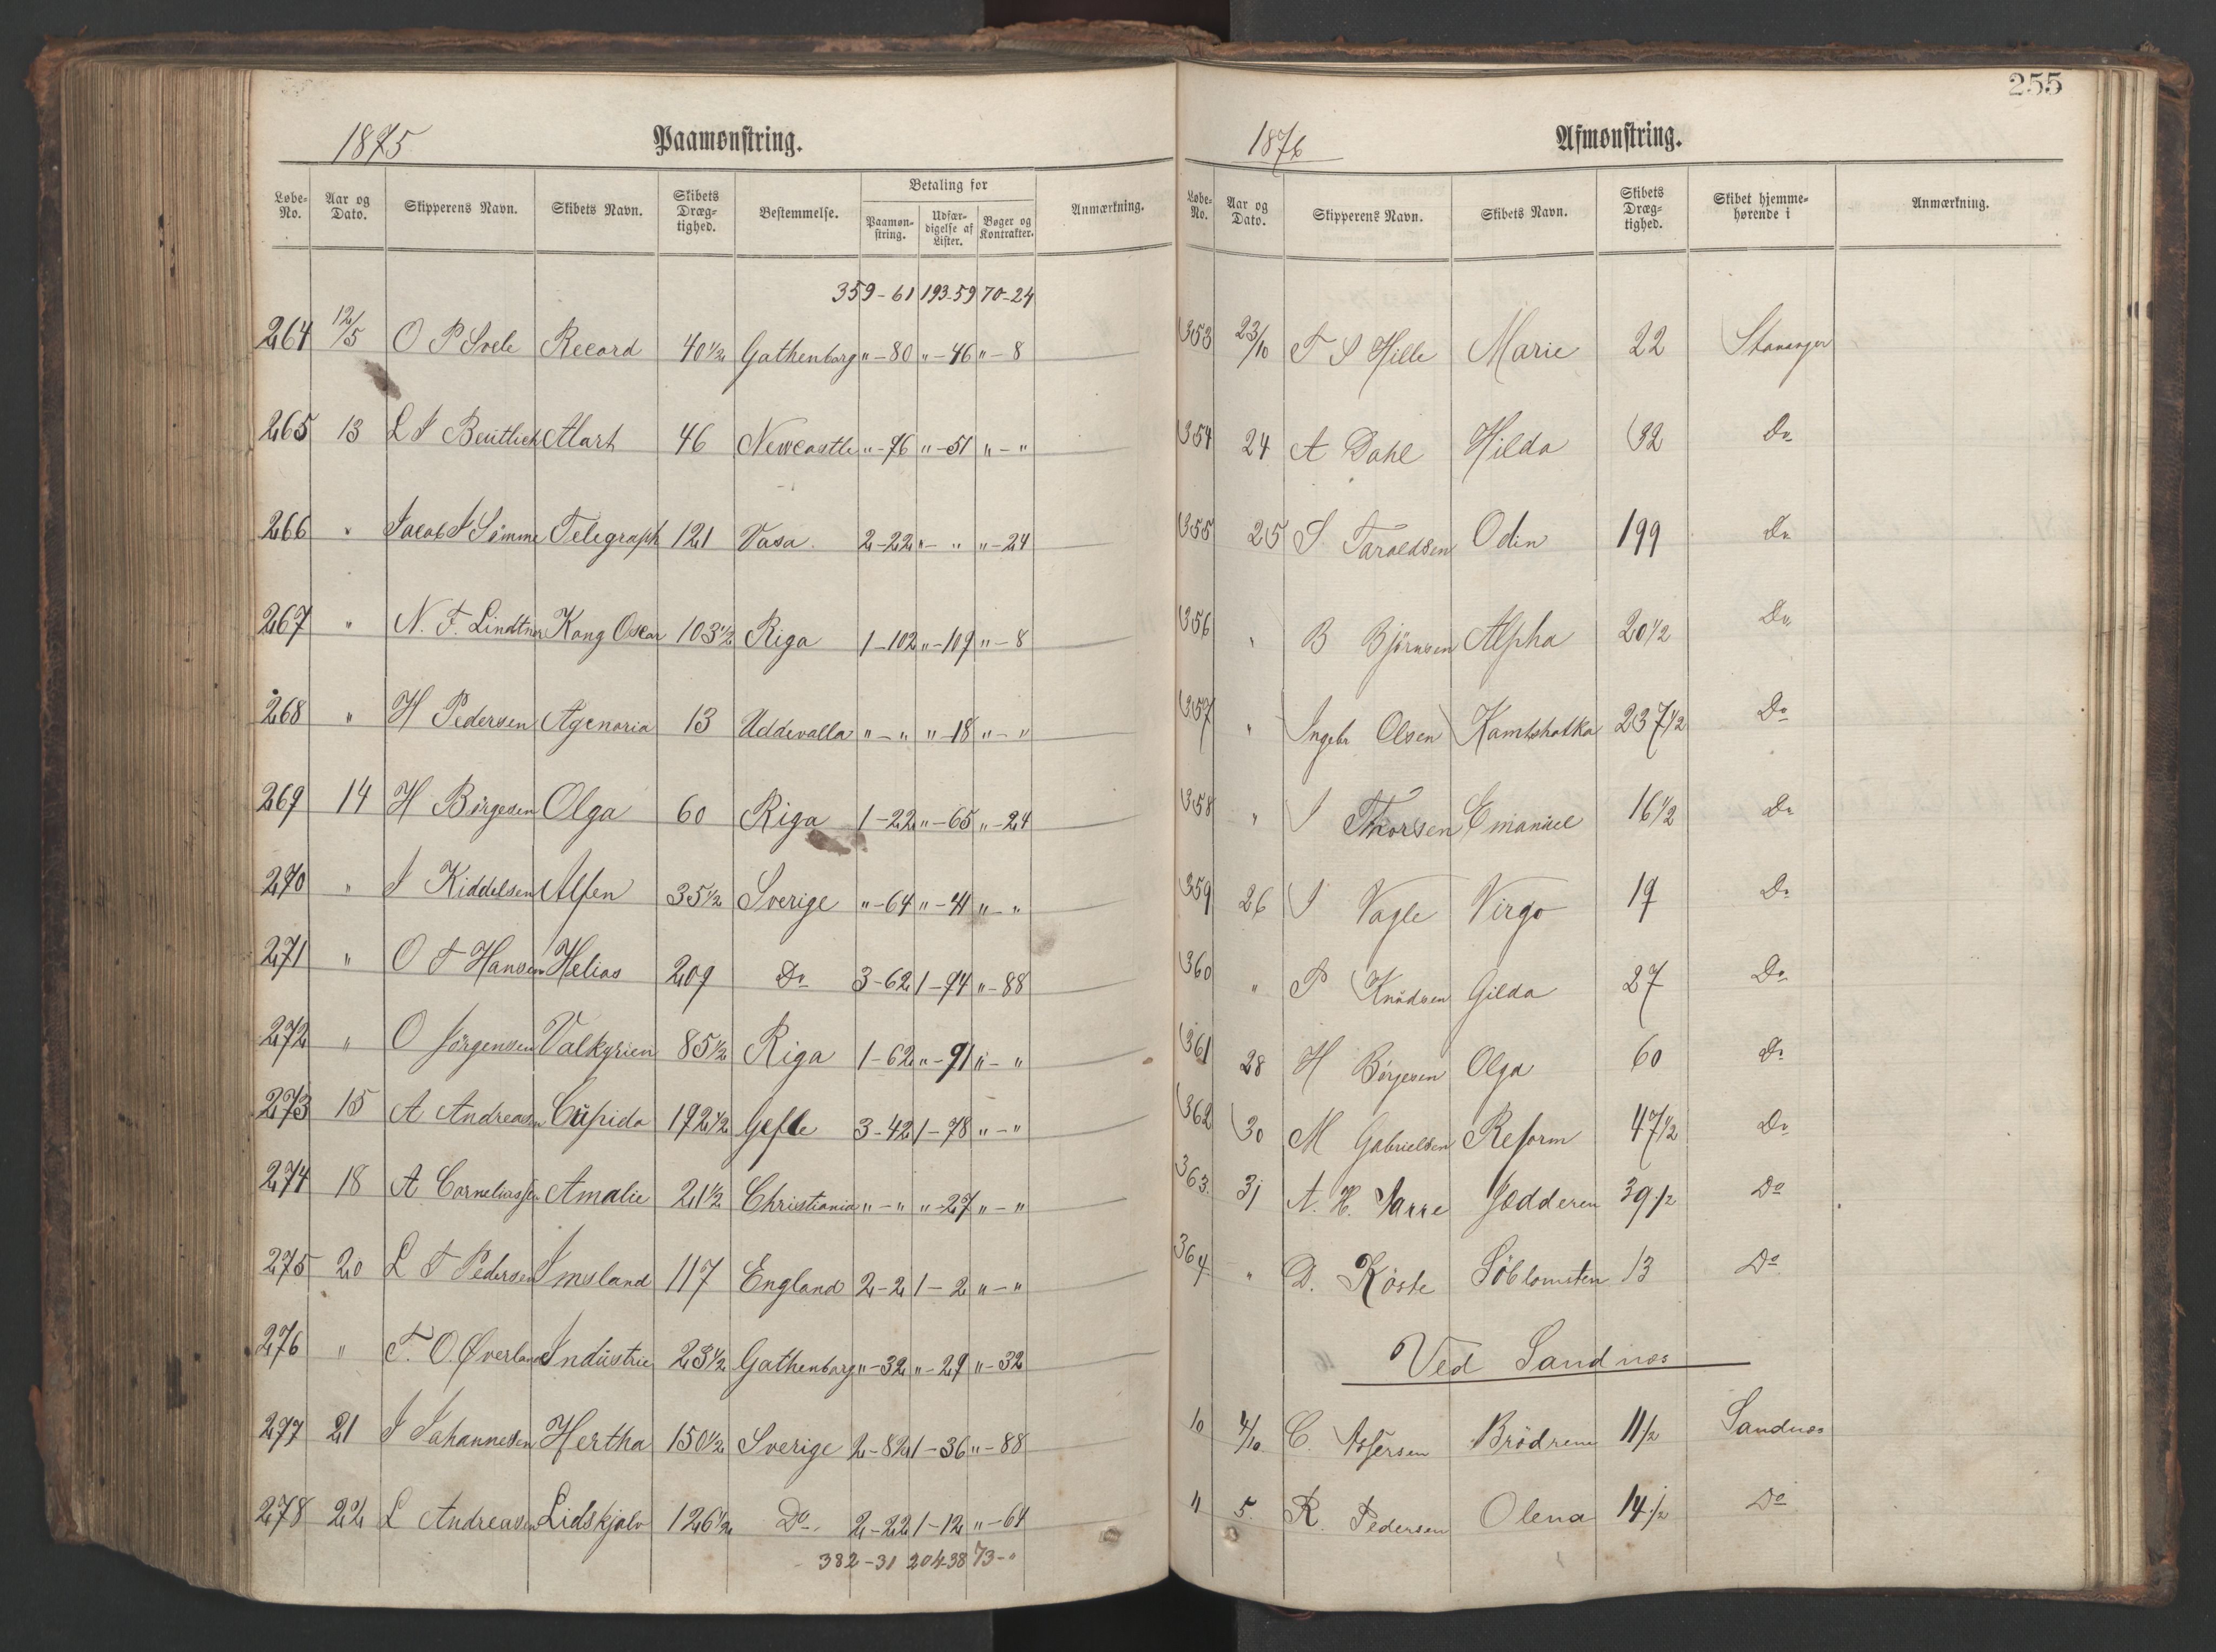 255
1875 Paamønstring.
Løbe-No. Aar og Dato. Skipperens Navn. Skibets Navn. Skibets Dræg-tighed. Bestemmelse. Betaling for Paamøn-string. Udfær-digelse af Lister. Bøger og Kontrakter. Anmærkning.
359-61 193-59 70-24
264 12/5 O P Svele Record 40 1/2 Gothenborg "-80 "-46 "-8
265 13 L I Beutlich Alart 46 Newcastle "-96 "-51 "-"
266 " Jacob I Sømme Telegraph 121 Vasa. 2-22 "-" "-24
267 " N. F. Lindtner Kong Oscar 103 1/2 Riga 1-102 "-109 "-8
268 " H Pedersen Agenoria 13 Uddevalla "-" "-18 "-"
269 14 H Börgesen Olga 60 Riga 1-22 "-65 "-24
270 " I Kiddelsen Alfen 35 1/2 Sverige "-64 "-41 "-"
271 " O T Hansen Helios 209 Do 3-62 1-94 "-88
272 " O Jörgensen Valkyrien 85 1/2 Riga 1-62 "-91 "-"
273 15 A Andreasen Cúpido 192 1/2 Gefle 3-42 1-78 "-"
274 18 A Corneliassen Amalie 21 1/2 Christiania "-" "-27 "-"
275 20 L T Pedersen Imsland 117 England 2-2 1-2 "-"
276 " T. O. Øverland Indústrie 23 1/2 Gothenborg "-32 "-29 "-32
277 21 I Johannesen Hertha 150 1/2 Sverige 2-82 1-36 "-88
278 22 L Andreasen Lidskjalv 126 1/2 Do 2-22 1-12 "-64
382-31 204-38 73-"
1876 Afmønstring.
Løbe-No. Aar og Dato. Skipperens Navn. Skibets Navn. Skibets Dræg-tighed. Skibet hjemme-hørende i Anmærkning.
353 23/10 T S Hille Marie 22 Stavanger
354 24 A Dahl Hilda 32 Do
355 25 S Taraldsen Odin 199 Do
356 " B Björnsen Alpha 20 1/2 Do
357 " Ingebr Olsen Kamtshatka 237 1/2 Do
358 " I Thorsen Emanúel 16 1/2 Do
359 26 I Vagle Virgo 19 Do
360 " P Knúdsen Gilda 27 Do
361 28 H Börgesen Olga 60 Do
362 30 M Gabrielsen Reform 47 1/2 Do
363. 31 A. H. Jædderen 39 1/2 Do
364 " D. Söblomsten 13 Do
Ved Sandnæs
10 4/10. C. Assersen Brödrene 11 1/2 Sandnæs
11 5. R. Pedersen Olena 14 1/2 Do